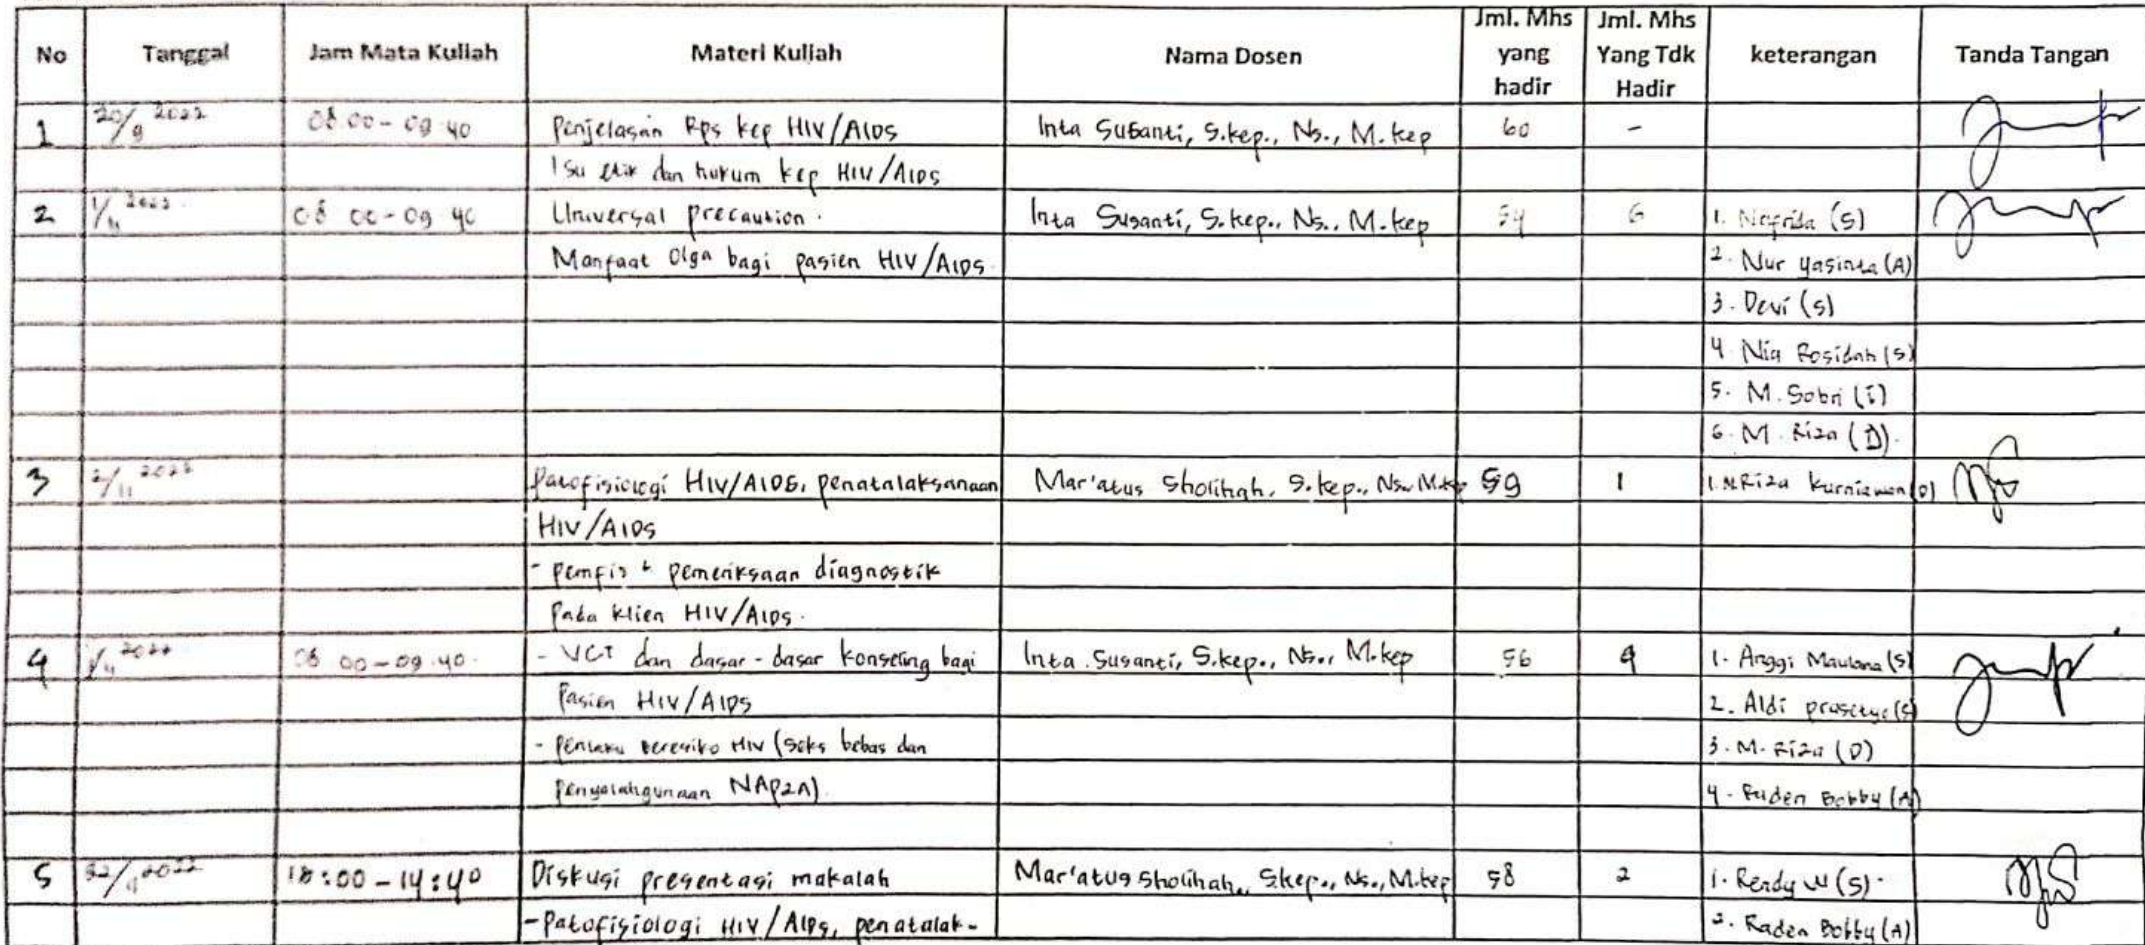 No Tanggal Jam Mata Kuliah Materi Kuliah Nama Dosen Jml. Mhs yang hadir Jml. Mhs Yang Tdk Hadir keterangan Tanda Tangan
1 20/9 2022 08.00 - 09.40 Penjelasan Rps kep HIV/AIDS Inta Susanti, S.kep., Ns., M.kep 60 -
Isu etik dan hukum kep HIV/AIDS
2 2022 08 00 - 09 40 Universal precaution. Inta Susanti, S.kep., Ns., M.kep 54 6 1. (S)
Manfaat Olga bagi pasien HIV/AIDS. 2. Nur yasinta (A)
3. Devi (S)
4. Nia Rosidah (S)
5. M. Sobri (i)
6. M. Riza (D).
3 2/11 2022 Patofisiologi HIV/AIDS, penatalaksanaan Mar'atus Sholihah, S.kep., Ns., M.kep 59 1 1. M Riza Kurniawan (D)
HIV/AIDS
- pemfis + pemeriksaan diagnostik
Pada klien HIV/AIDS.
4 2022 08 00 - 09.40. - VCT dan dasar-dasar konseling bagi Inta Susanti, S.kep., Ns., M.kep 56 4 1. Anggi Maulana (S)
Pasien HIV/AIDS 2. Aldi prasetyo (S)
- perilaku beresiko HIV (Seks bebas dan 3. M. Riza (D)
Penyalahgunaan NAPZA). 4. Raden Bobby (A)
5 2022 - 14:40 Diskusi presentasi makalah Mar'atus Sholihah, S.kep., Ns., M.kep 58 2 1. Rendy W (S).
- Patofisiologi HIV/AIDS, penatalak- 2. Raden Bobby (A)